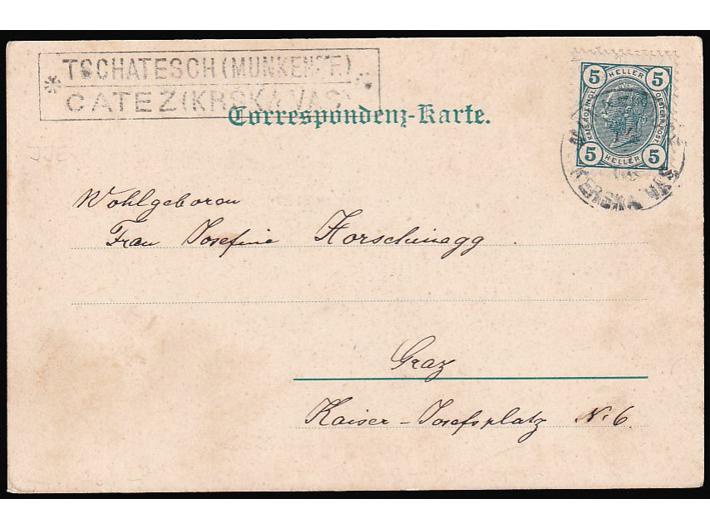 * TSCHATESCH (MUNKEND
CATEZ (KRSKA VAS)
Correspondenz-Karte.
5 HELLER 5
5 HELLER 5
KERSKA VAS
Wohlgeboren
Frau Josefine Horschinagg.
Graz
Kaiser-Josefsplatz N. 6.